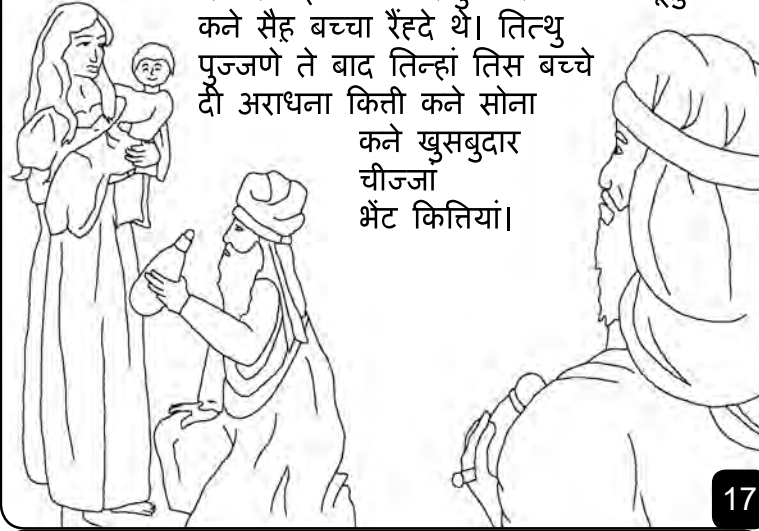 कने सैह़ बच्चा रैंह्दे थे। तित्थु
पुज्जणे ते बाद तिन्हां तिस बच्चे
दी अराधना कित्ती कने सोना
कने खुसबुदार
चीज्जां
भेंट कित्तियां।
17